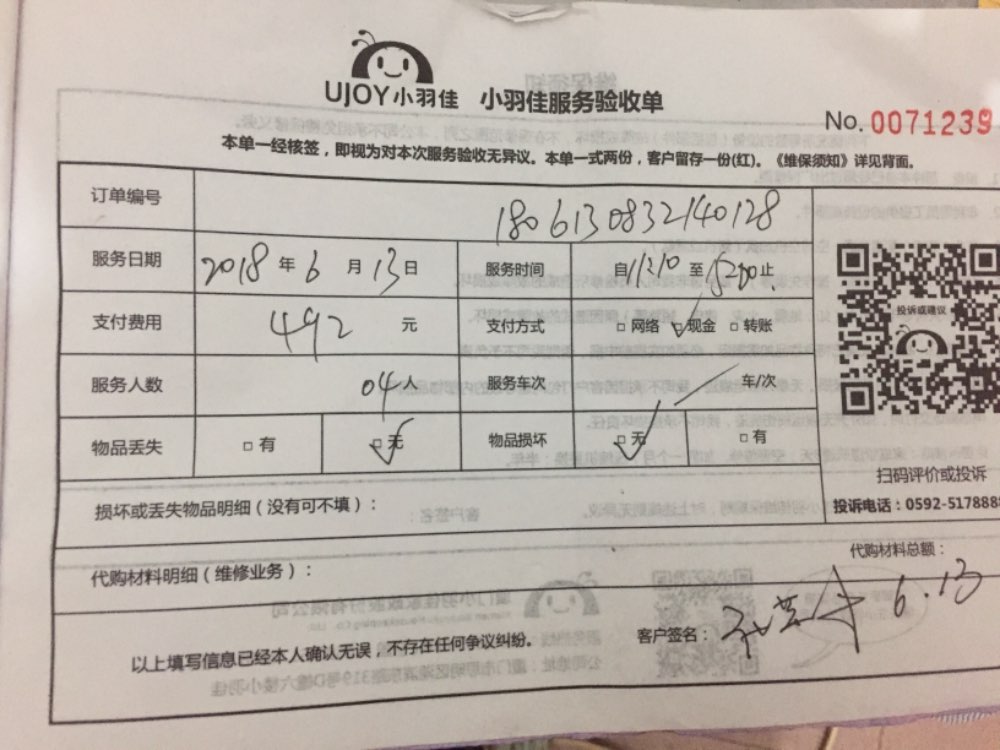 UJOY小羽佳 小羽佳服务验收单
No. 0071239
本单一经核签，即视为对本次服务验收无异议。本单一式两份，客户留存一份(红)。《维保须知》详见背面。
订单编号 1806130832140128
服务日期 2018年6月13日 服务时间 自 至 止
支付费用 492元 支付方式 □网络 □现金 □转账
投诉或建议
服务人数 04人 服务车次 车/次
物品丢失 □有 □无 物品损坏 □无 □有
扫码评价或投诉
损坏或丢失物品明细（没有可不填）：
投诉电话：0592-5178888
代购材料总额：
代购材料明细（维修业务）：
以上填写信息已经本人确认无误，不存在任何争议纠纷。
客户签名： 6.13